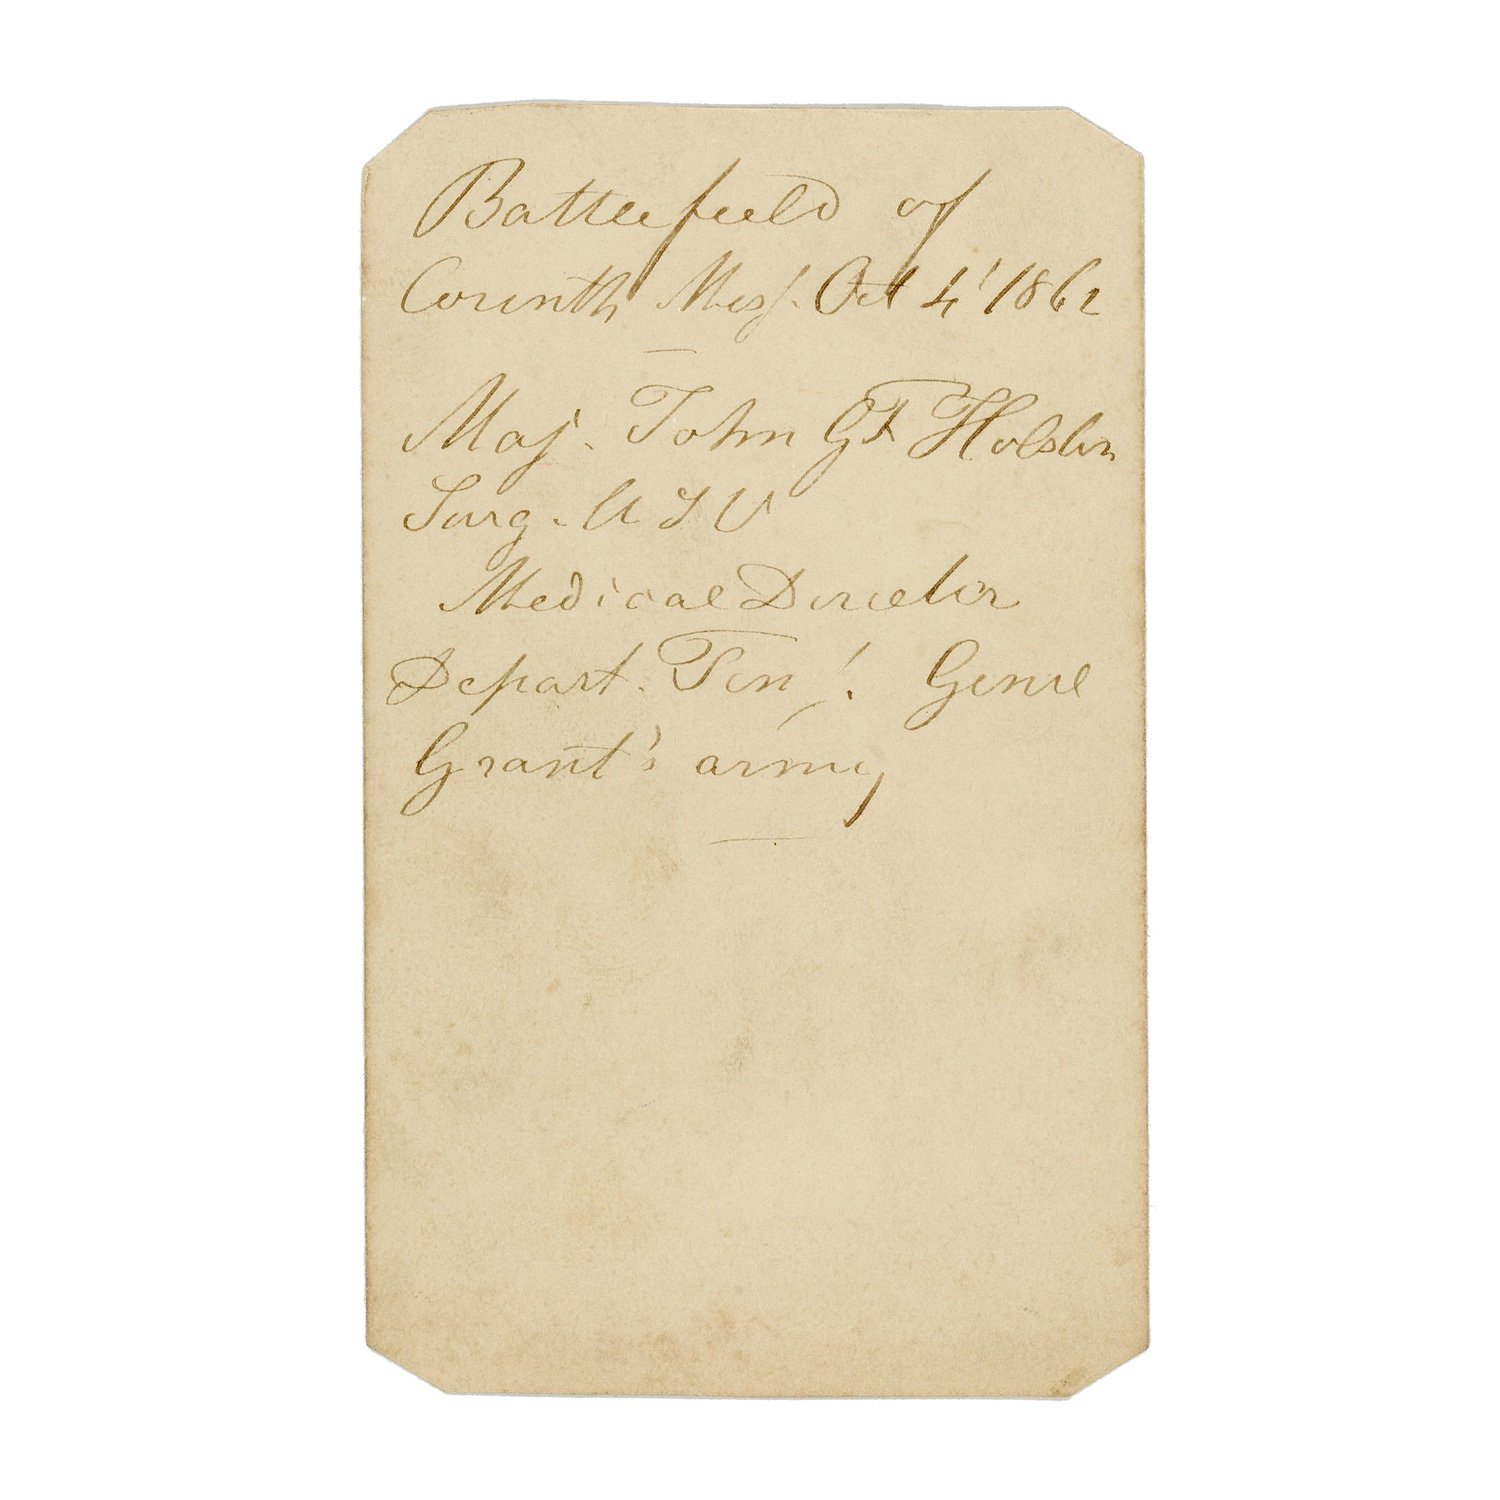 Battlefield of
Corinth Miss. Oct 4' 1862
Maj. John G F Holston
Surg. U S V
Medical Director
Depart. Ten! Genrl
Grant's army